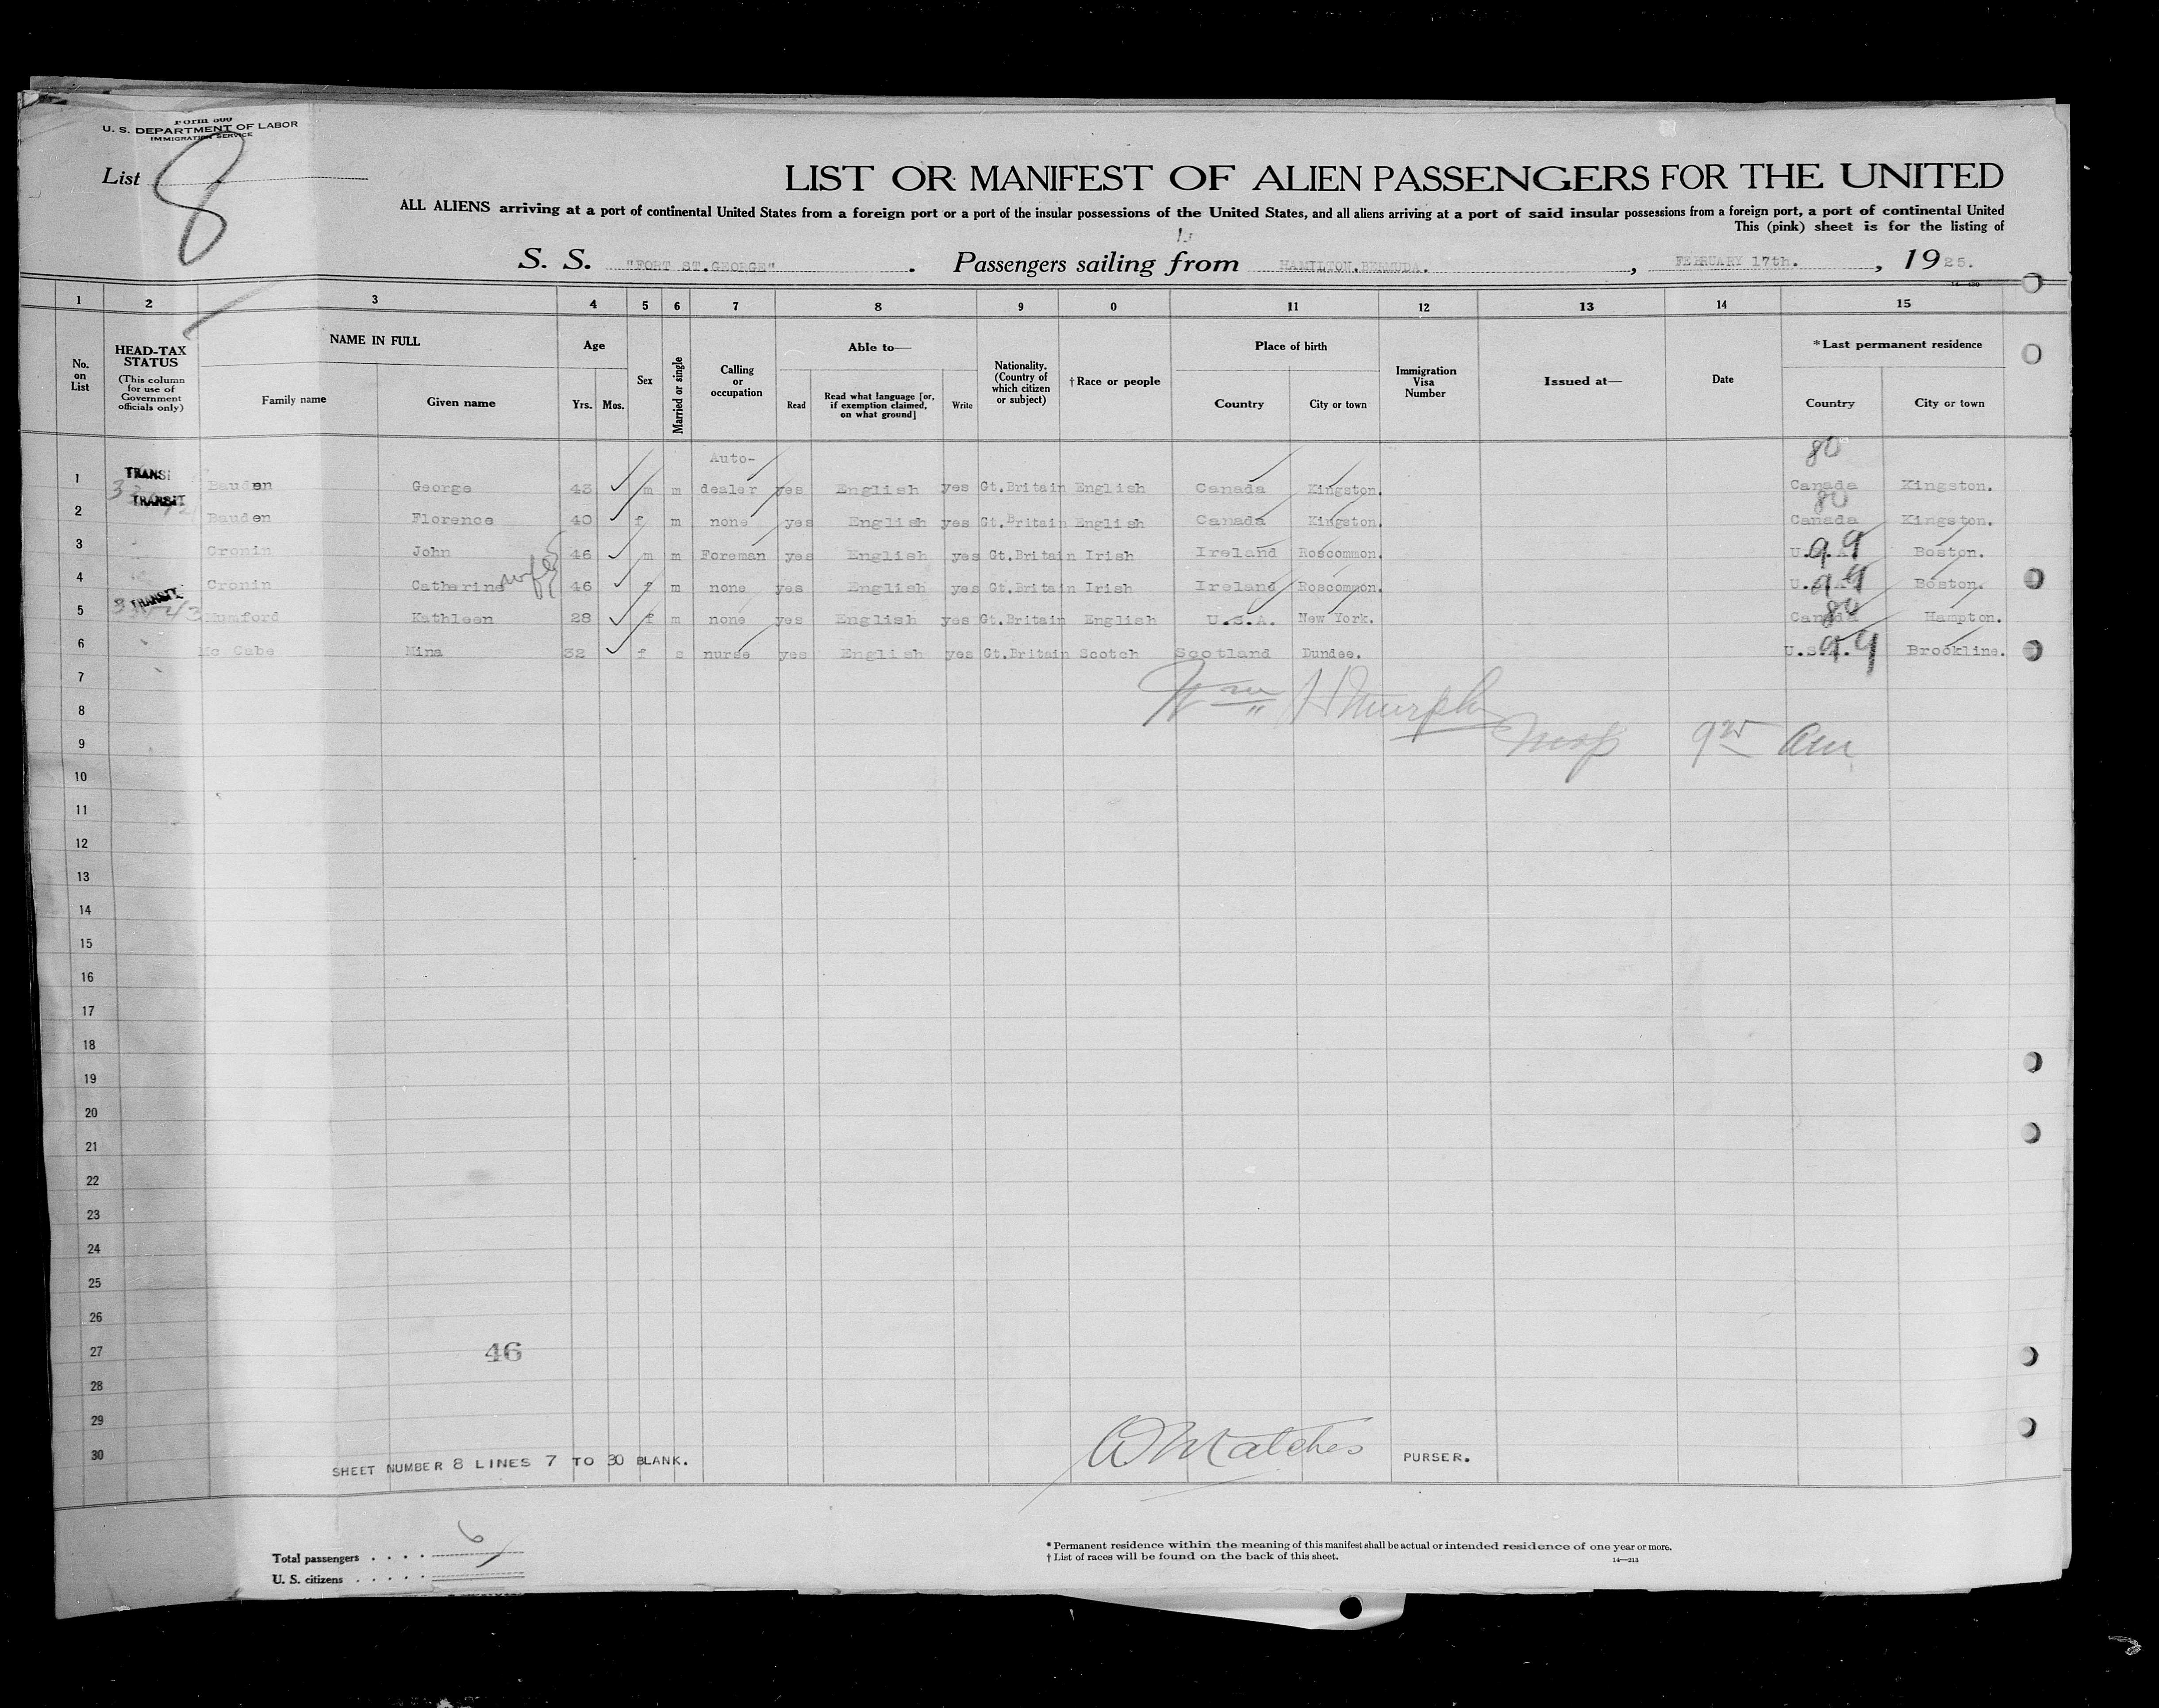 Form 500
U. S. DEPARTMENT OF LABOR
IMMIGRATION SERVICE
List 8
LIST OR MANIFEST OF ALIEN PASSENGERS FOR THE UNITED
ALL ALIENS arriving at a port of continental United States from a foreign port or a port of the insular possessions of the United States, and all aliens arriving at a port of said insular possessions from a foreign port, a port of continental United
This (pink) sheet is for the listing of
S. S. "FORT ST.GEORGE" . Passengers sailing from HAMILTON.BERMUDA. , FEBRUARY 17th. , 1925.
1 2 3 4 5 6 7 8 9 0 11 12 13 14 15
No. on List
HEAD-TAX STATUS
(This column for use of Government officials only)
NAME IN FULL
Family name Given name
Age
Yrs. Mos.
Sex
Married or single
Calling or occupation
Able to—
Read
Read what language [or, if exemption claimed, on what ground]
Write
Nationality. (Country of which citizen or subject)
† Race or people
Place of birth
Country City or town
Immigration Visa Number
Issued at—
Date
* Last permanent residence
Country City or town
Auto- 80
1 TRANSI Bauden George 43 m m dealer yes English yes Gt.Britain English Canada Kingston. Canada Kingston.
TRANSIT 80
2 Bauden Florence 40 f m none yes English yes Gt.Britain English Canada Kingston. Canada Kingston.
3 Cronin John 46 m m Foreman yes English yes Gt.Britain Irish Ireland Roscommon. U.S.A. 99 Boston.
4 Cronin Catharine wife 46 f m none yes English yes Gt.Britain Irish Ireland Roscommon. U.S.A. 99 Boston.
5 TRANSIT Mumford Kathleen 28 f m none yes English yes Gt.Britain English U.S.A. New York. Canada 80 Hampton.
6 Mc Cabe Mina 32 f s nurse yes English yes Gt.Britain Scotch Scotland Dundee. U.S.A. 99 Brookline.
7
Wm H Murphy
8
9 9 25 am
10
11
12
13
14
15
16
17
18
19
20
21
22
23
24
25
26
27 46
28
29
30
SHEET NUMBER 8 LINES 7 TO 30 BLANK. PURSER.
Total passengers . . . . 6
U. S. citizens . . . . .
* Permanent residence within the meaning of this manifest shall be actual or intended residence of one year or more.
† List of races will be found on the back of this sheet. 14—213